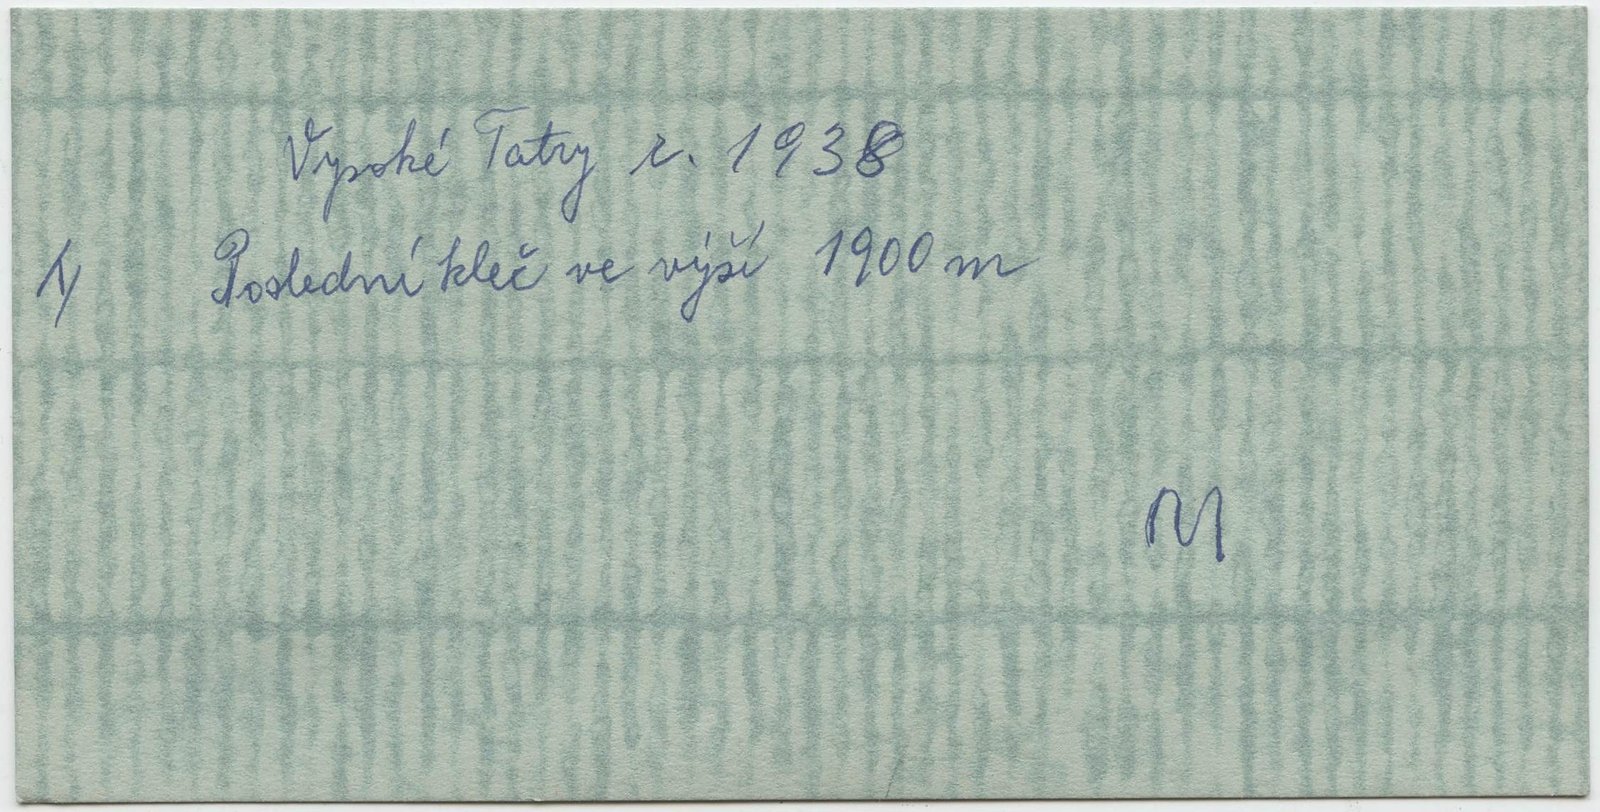 Vysoké Tatry r. 1938
1) Poslední kleč ve výší 1900 m
M